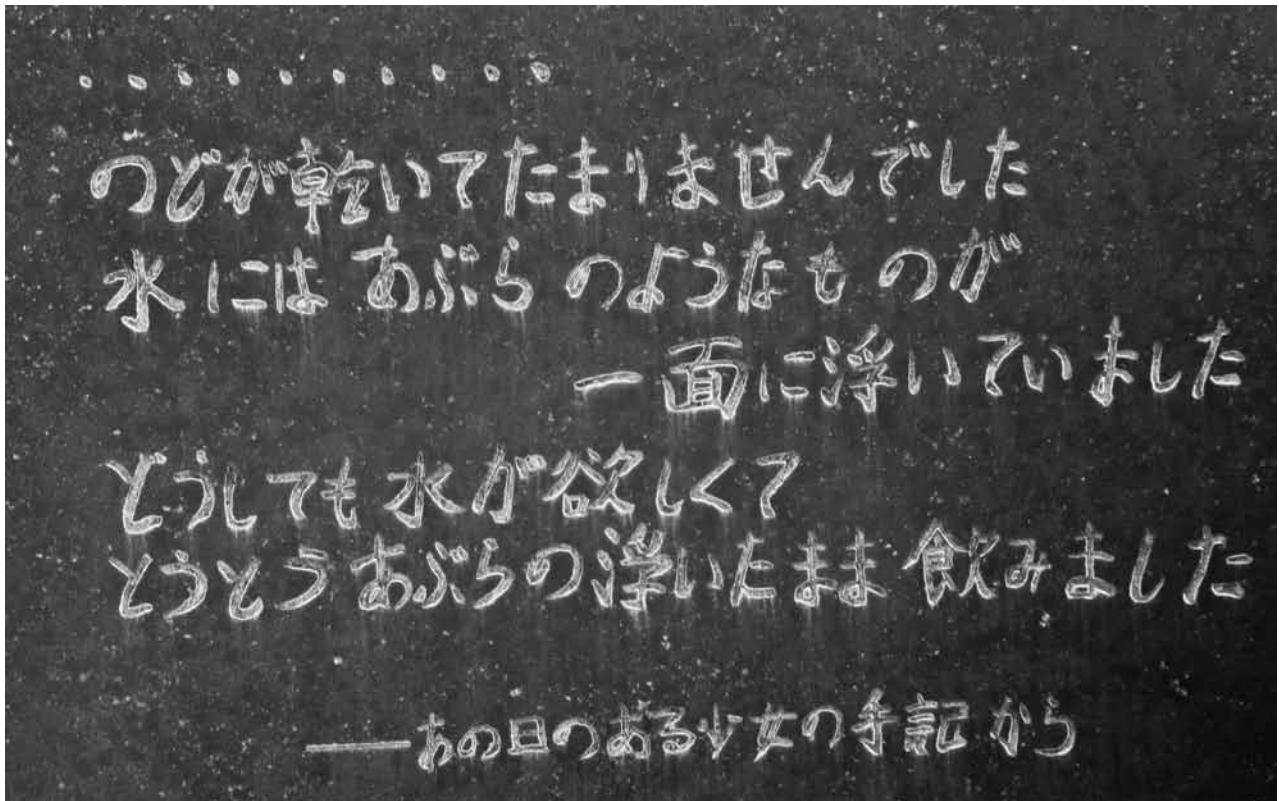 ・・・・・・・・・・
のどが乾いてたまりませんでした
水には あぶら のようなものが
一面に浮いていました
どうしても水が欲しくて
とうとうあぶらの浮いたまま 飲みました
――あの日のある少女の手記から